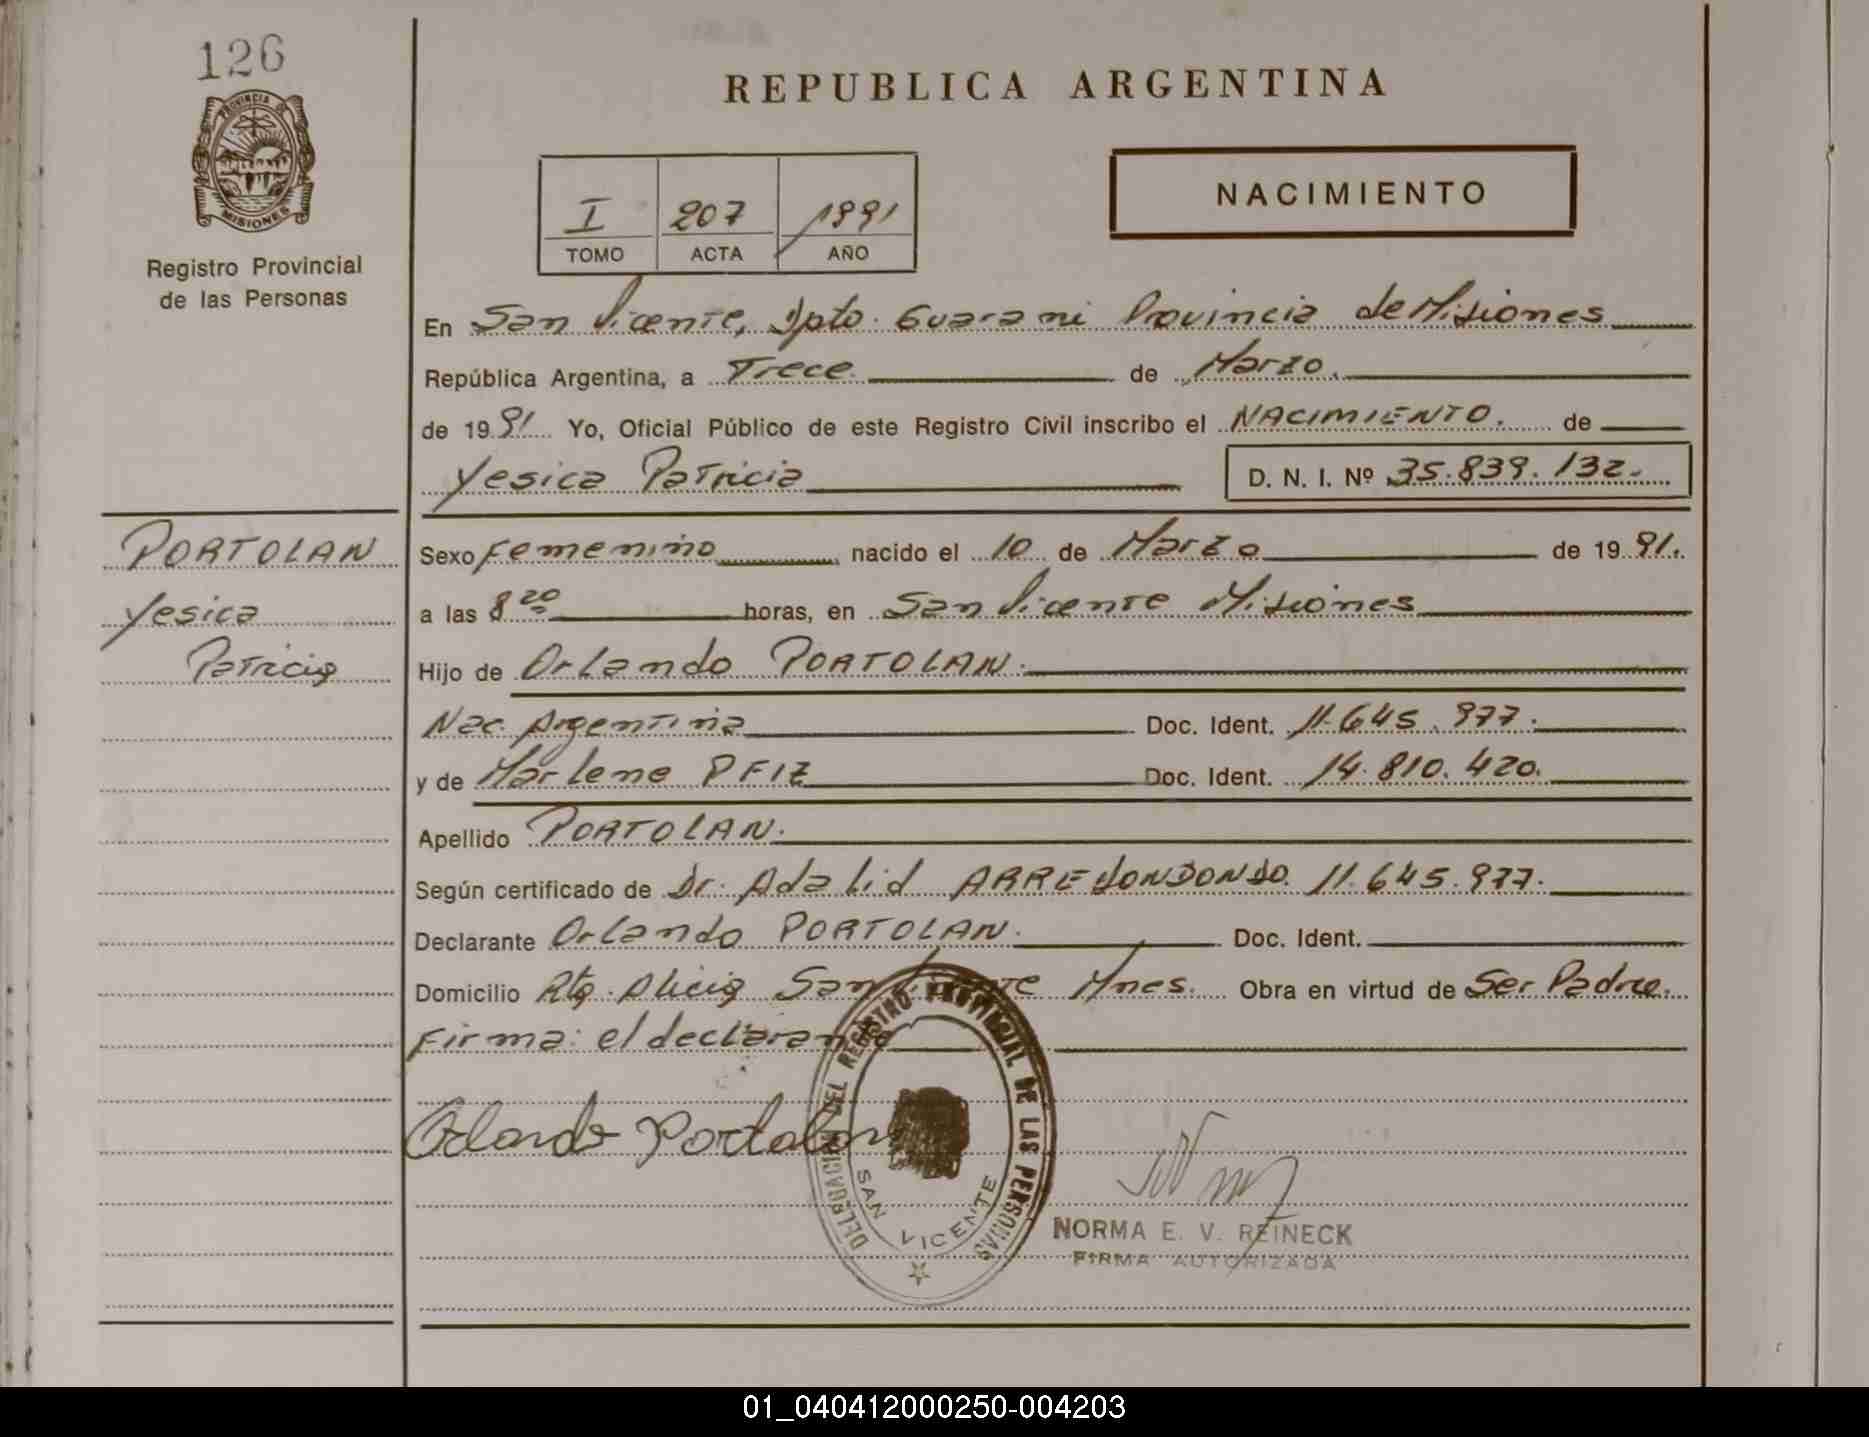 126
PROVINCIA DE
MISIONES
Registro Provincial
de las Personas
REPUBLICA ARGENTINA
I 207 1991
TOMO ACTA AÑO
NACIMIENTO
En San Vicente, Dpto. Guarani Provincia de Misiones
República Argentina, a Trece de Marzo.
de 1991 Yo, Oficial Público de este Registro Civil inscribo el NACIMIENTO. de
Yesica Patricia D. N. I. Nº 35.839.132.
PORTOLAN
Yesica
Patricia
Sexo Femenino nacido el 10 de Marzo de 1991.
a las 8 20 horas, en San Vicente Misiones
Hijo de Orlando PORTOLAN.
Nac. Argentina Doc. Ident. 11.645.977.
y de Marlene PFIZ Doc. Ident. 14.810.420.
Apellido PORTOLAN.
Según certificado de Dr. Adalid ARREDONDONDO. 11.645.977.
Declarante Orlando PORTOLAN. Doc. Ident.
Domicilio Rta. Alicia San Vicente Mnes. Obra en virtud de Ser Padre.
Firma: el declarante
Orlando Portolan
DELEGACION DEL REGISTRO PROVINCIAL DE LAS PERSONAS
SAN VICENTE
NORMA E. V. REINECK
FIRMA AUTORIZADA
01_040412000250-004203